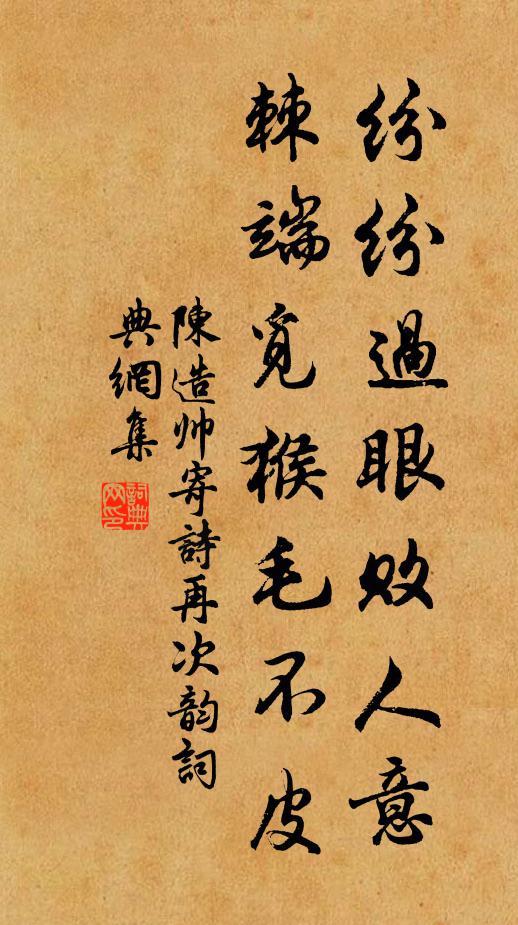 紛紛過眼敗人意
棘端覓猴毛不皮
陳造帅寄詩再次韵詞
典網集
詞典網印